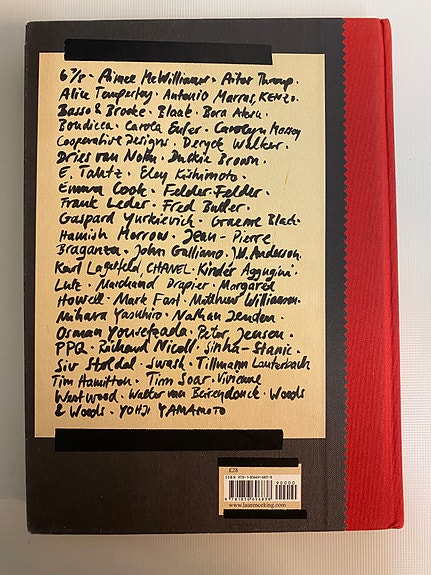 6 7/8 · Aimee McWilliams · Aitor Throup ·
Alice Temperley · Antonio Marras, KENZO ·
Basso & Brooke · Blaak · Bora Aksu ·
Boudicca · Carola Euler · Carolyn Massey
Cooperative Designs · Deryck Walker ·
Dries van Noten · Duckie Brown ·
E. Tautz · Eley Kishimoto ·
Emma Cook · Felder·Felder ·
Frank Leder · Fred Butler ·
Gaspard Yurkievich · Graeme Black
Hamish Morrow · Jean-Pierre
Braganza · John Galliano · J.W. Anderson ·
Karl Lagerfeld, CHANEL · Kinder Aggugini ·
Lutz · Marchand Drapier · Margaret
Howell · Mark Fast · Matthew Williamson ·
Mihara Yasuhiro · Nathan Jenden ·
Osman Yousefzada · Peter Jensen ·
PPQ · Richard Nicoll · Sinha-Stanic ·
Siv Støldal · Swash · Tillmann Lauterbach
Tim Hamilton · Tim Soar · Vivienne
Westwood · Walter van Beirendonck · Woods
& Woods · YOHJI YAMAMOTO
£28
90000
www.laurenceking.com